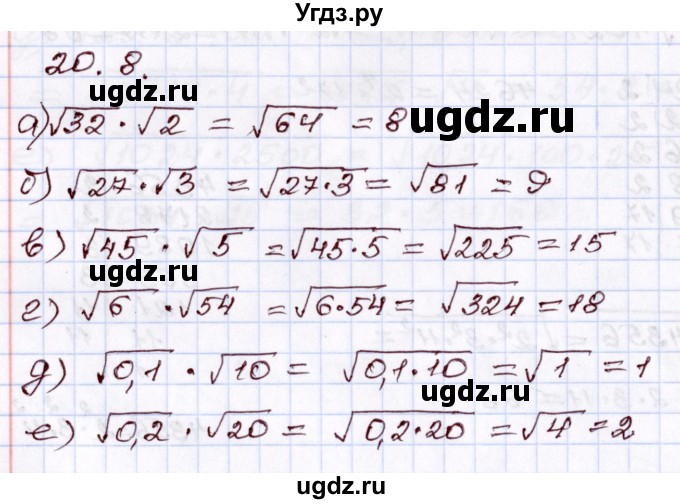 Угдз.ру
20. 8.
ugdz.ru
а) √32 · √2 = √64 = 8
ugdz.ru
б) √27 · √3 = √27·3 = √81 = 9
ugdz.ru
в) √45 · √5 = √45·5 = √225 = 15
ugdz.ru
г) √6 · √54 = √6·54 = √324 = 18
ugdz.ru
д) √0,1 · √10 = √0,1·10 = √1 = 1
ugdz.ru
е) √0,2 · √20 = √0,2·20 = √4 = 2
ugdz.ru
ugdz.ru